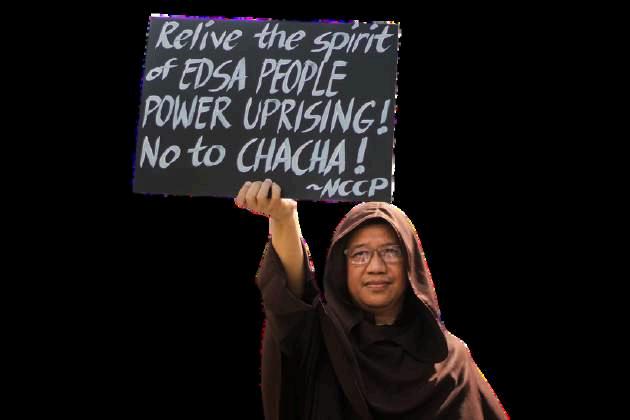 Relive the spirit
of EDSA PEOPLE
POWER UPRISING!
No to CHACHA!
~NCCP